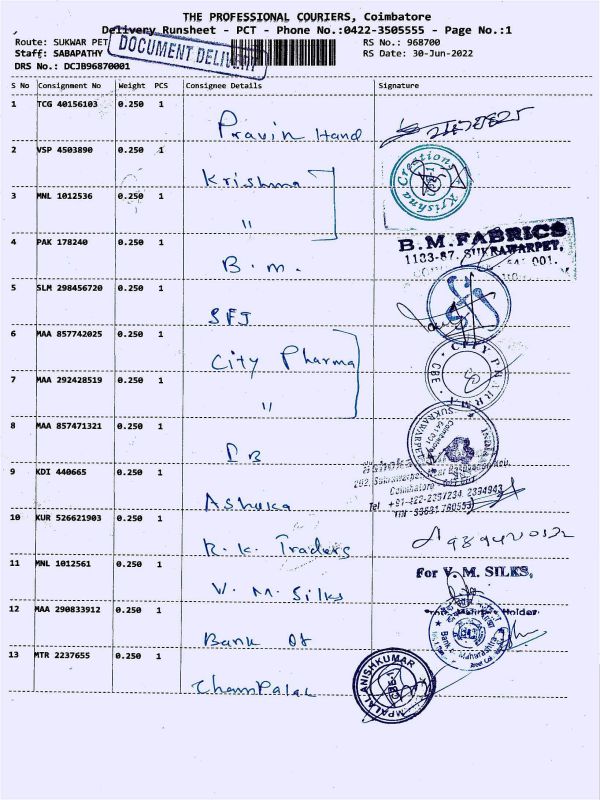 THE PROFESSIONAL COURIERS, Coimbatore
Delivery Runsheet - PCT - Phone No.:0422-3505555 - Page No.:1
Route: SUKWAR PET
RS No.: 968700
Staff: SABAPATHY
RS Date: 30-Jun-2022
DRS No.: DCJB96870001
DOCUMENT DELIVERY
S No Consignment No Weight PCS Consignee Details Signature
1 TCG 40156103 0.250 1
Pravin Hand
2 VSP 4503890 0.250 1
Krishna
Krishna Creations
3 MNL 1012536 0.250 1
"
4 PAK 178240 0.250 1
B.M.
B.M.FABRICS
1133-87, SUKRAWARPET,
5 SLM 298456720 0.250 1
SFJ
6 MAA 857742025 0.250 1
City Pharma
CITY PHARMA
CBE
7 MAA 292428519 0.250 1
"
8 MAA 857471321 0.250 1
SUKRAWARPET
Coimbatore
641 001
INDIA
9 KDI 440665 0.250 1
Coimbatore
Tel +91-422-2357234, 2394943
Ashuka
10 KUR 526621903 0.250 1
R.K. Traders
11 MNL 1012561 0.250 1
V.M. Silks
For V. M. SILKS,
Holder
12 MAA 290833912 0.250 1
Bank Of
Bank of Maharashtra
13 MTR 2237655 0.250 1
ChamPalal
MPALAL ANISHKUMAR